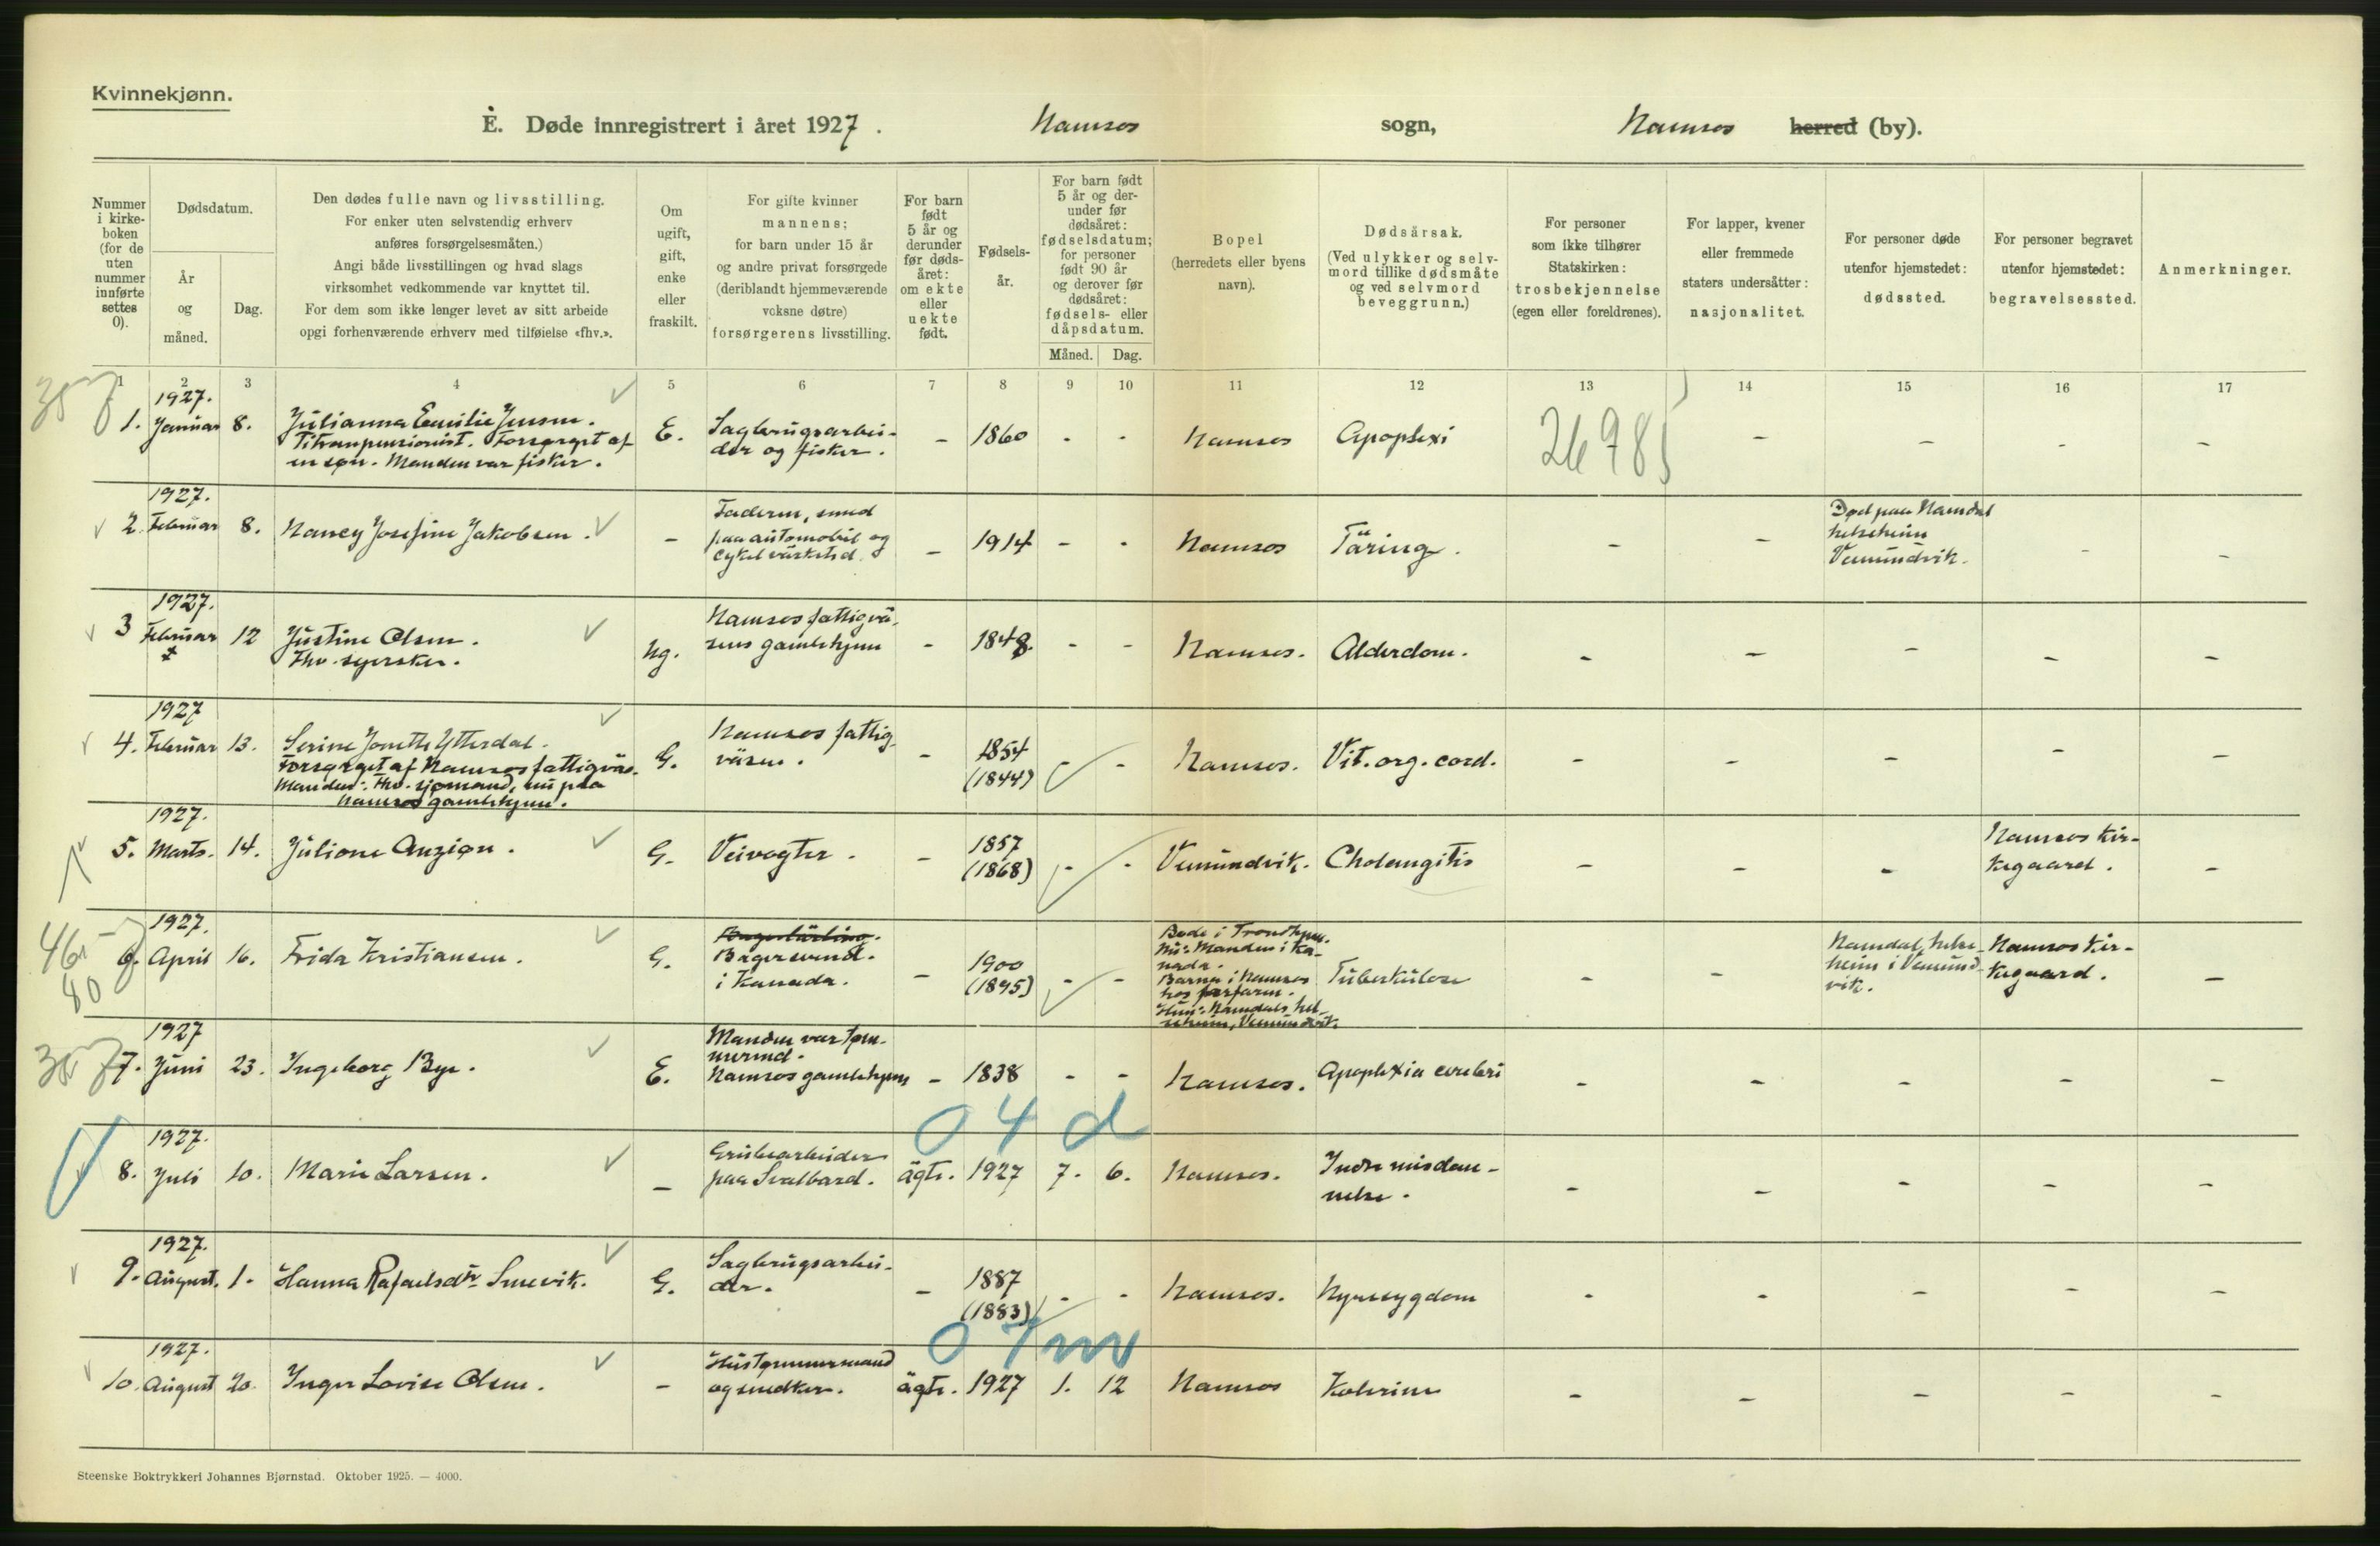 Kvinnekjønn.
E. Døde innregistrert i året 1927. Namsos sogn, Namsos herred (by).
Nummer i kirkeboken (for de uten nummer innførte settes 0).
Dødsdatum.
År og måned.
Dag.
Den dødes fulle navn og livsstilling.
For enker uten selvstendig erhverv
anføres forsørgelsesmåten.)
Angi både livsstillingen og hvad slags
virksomhet vedkommende var knyttet til.
For dem som ikke lenger levet av sitt arbeide
opgi forhenværende erhverv med tilføielse «fhv.».
Om ugift, gift, enke eller fraskilt.
For gifte kvinner
mannens;
for barn under 15 år
og andre privat forsørgede
(deriblandt hjemmeværende
voksne døtre)
forsørgerens livsstilling.
For barn født 5 år og derunder før dødsåret: om ekte eller uekte født.
Fødselsår.
For barn født 5 år og derunder før dødsåret: fødselsdatum; for personer født 90 år og derover før dødsåret: fødsels- eller dåpsdatum.
Måned. Dag.
Bopel
(herredets eller byens navn).
Dødsårsak.
(Ved ulykker og selvmord tillike dødsmåte og ved selvmord beveggrunn.)
For personer
som ikke tilhører
Statskirken:
trosbekjennelse
(egen eller foreldrenes).
For lapper, kvener
eller fremmede
staters undersåtter:
nasjonalitet.
For personer døde
utenfor hjemstedet:
dødssted.
For personer begravet
utenfor hjemstedet:
begravelsessted.
Anmerkninger.
1 2 3 4 5 6 7 8 9 10 11 12 13 14 15 16 17
1927.
1. Januar 8. Julianna Emilie Jensen. E. Sagbrugsarbei- - 1860 - - Namsos Apoplexi 26985 - - - -
Forsørget af
en søn. Manden var fisker. der og fisker.
1927.
2. Februar 8. Nancy Josefine Jakobsen. - Faderen, smed - 1914 - - Namsos Täring. - - Død paa Namdal - -
paa automobil og helseheim
cykelverksted. Vemundvik.
1927.
3 Februar 12 Justine Olsen. Ug. Namsos fattigvä- - 1848. - - Namsos. Alderdom. - - - - -
Fhv. syerske. sens gamlehjem
1927
4. Februar 13. Serine Jonette Ytterdal. G. Namsos fattig- - 1854 - - Namsos. Vit. org. cord. - - - - -
Forsørget af Namsos fattigväs. väsen. (1844)
Manden: Fhv. sjømand, nu paa
Namsos gamlehjem.
1927.
5. Marts. 14. Julione Anzjøn. G. Veivogter. - 1857 - - Vemundvik. Cholangitis - - - Namsos kir- -
(1868) kegaard.
1927.
46 80
6. April 16. Frida Kristiansen. G. Bagersvend. - 1900 - - Bode i Trondhjem. Tuberkulose - - Namdal helse- Namsos kir- -
i Kanada. (1895) Nu: Manden i Ka- heim i Vemund- kegaard.
nada. vik.
Barna i Namsos
hos farfaren.
Hun: Namdals hel-
seheim, Vemundvik.
1927
7. Juni 23. Ingeborg Bye. E. Manden var tøm- - 1838 - - Namsos. Apoplexia cerebri - - - - -
mermd.
Namsos gamlehjem
04 d
1927.
8. Juli 10. Marie Larsen. - Grubearbeider ägte. 1927 7. 6. Namsos. Indre misdan- - - - - -
paa Svalbard. nelse.
1927.
9. August. 1. Hanna Rafaelsdtr Smevik. G. Sagbrugsarbei- - 1887 - - Namsos. Nyresygdom - - - - -
der. (1883)
07 m
1927.
10. August 20. Inger Lovise Olsen. - Hustømmermand ägte. 1927 1. 12 Namsos Kolerine - - - - -
og snedker.
Steenske Boktrykkeri Johannes Bjørnstad. Oktober 1925. — 4000.